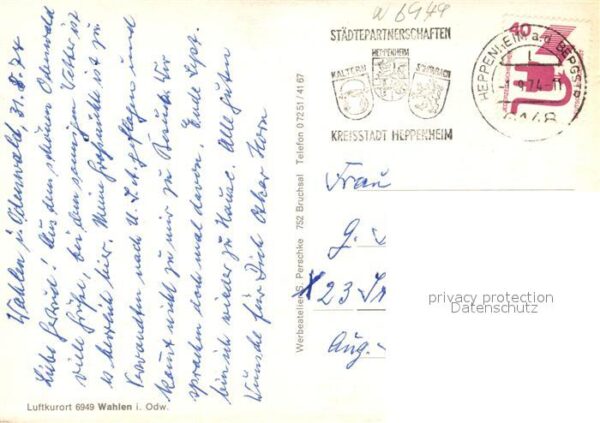 Wahlen i. Odenwald, 31.8.74
Liebe Gertrud! Aus dem schönen Odenwald
viele Grüße, bei dem sonnigen Wetter ist
es herrlich hier. Meine ist zu
Verwandten nach U.S.A. geflogen und
kommt nicht zu mir zu Besuch. Wir
sprachen doch mal davon. Ende Sept.
bin ich wieder zu Hause. Alle guten
Wünsche für Dich Oskar Horn
Luftkurort 6949 Wahlen i. Odw.
Werbeatelier S. Perschke 752 Bruchsal Telefon 0 72 51 / 41 67
W 6949
STÄDTEPARTNERSCHAFTEN
HEPPENHEIM
KALTERN
KREISSTADT HEPPENHEIM
40
HEPPENHEIM a.d. BERGSTR
6148
Frau
G.
23
Aug.-
privacy protection
Datenschutz